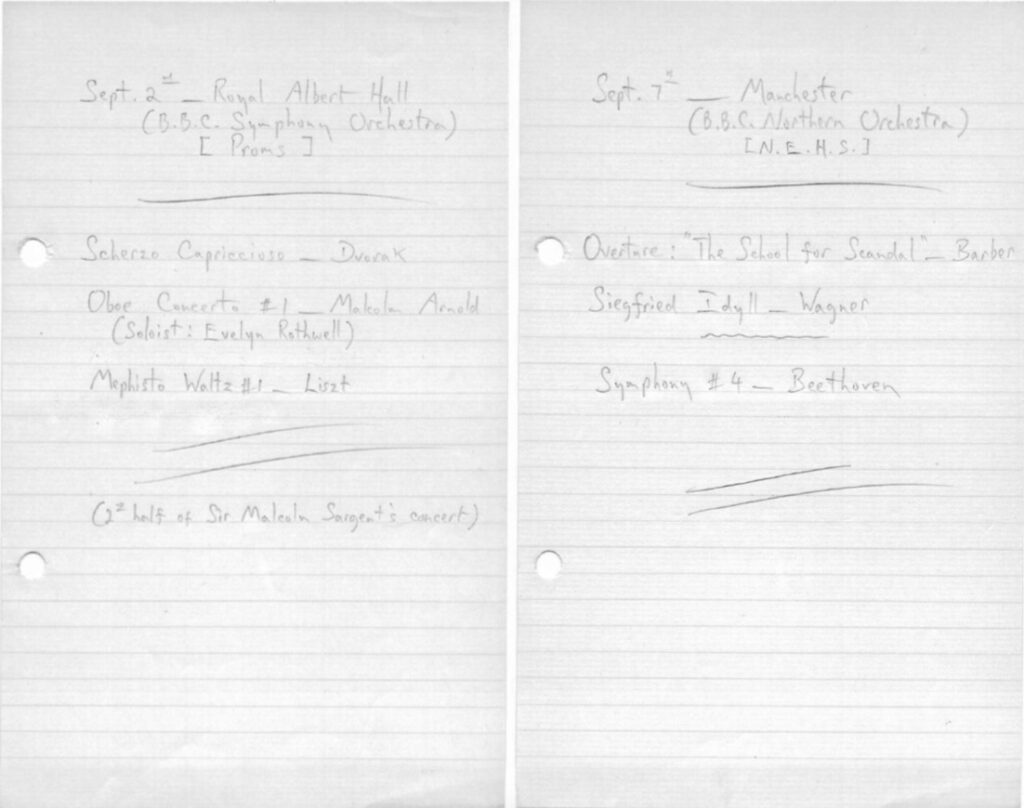 Sept. 2nd — Royal Albert Hall
(B.B.C. Symphony Orchestra)
[ Proms ]
Scherzo Capriccioso — Dvorak
Oboe Concerto #1 — Malcolm Arnold
(Soloist: Evelyn Rothwell)
Mephisto Waltz #1 — Liszt
(2nd half of Sir Malcolm Sargent's concert)
Sept. 7th — Manchester
(B.B.C. Northern Orchestra)
[N.E.H.S.]
Overture: "The School for Scandal" — Barber
Siegfried Idyll — Wagner
Symphony #4 — Beethoven